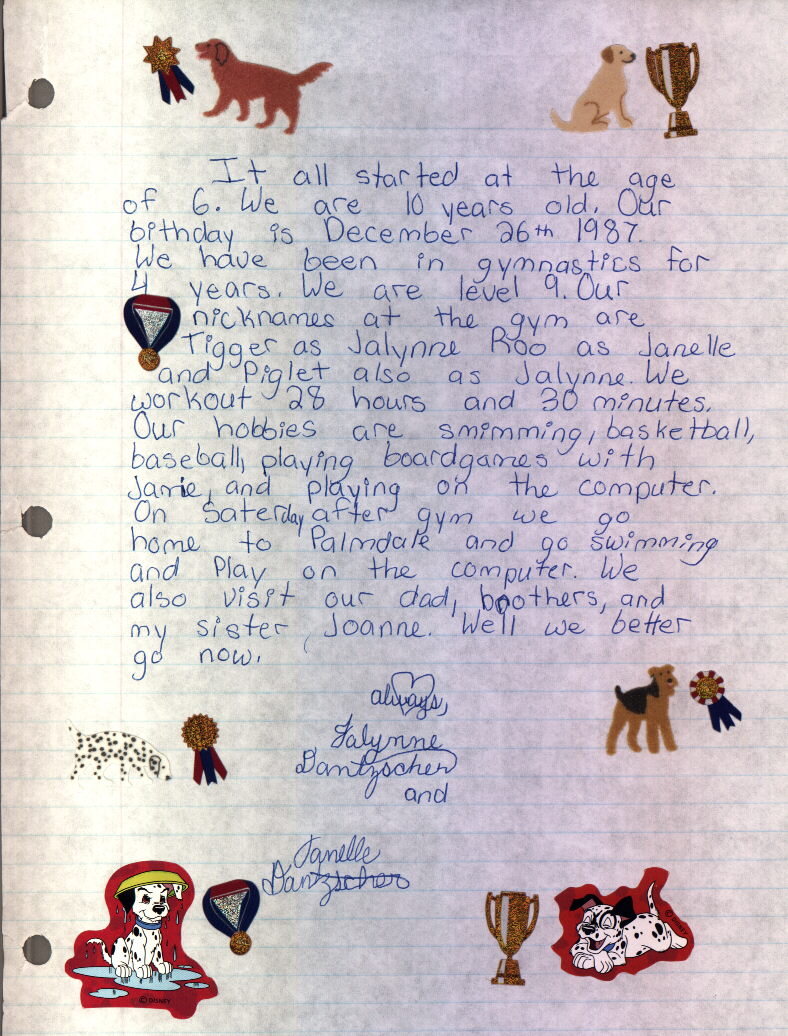 It all started at the age
of 6. We are 10 years old. Our
birthday is December 26th 1987.
We have been in gymnastics for
4 years. We are level 9. Our
nicknames at the gym are
Tigger as Jalynne Roo as Janelle
and Piglet also as Jalynne. We
workout 28 hours and 30 minutes.
Our hobbies are smimming, basketball,
baseball, playing boardgames with
Jamie, and playing on the computer.
On Saterday after gym we go
home to Palmdale and go swimming
and Play on the computer. We
also visit our dad, broothers, and
my sister, Joanne. Well we better
go now.
always,
Jalynne
Dantzscher
and
Janelle
Dantzscher
©DISNEY
©DISNEY